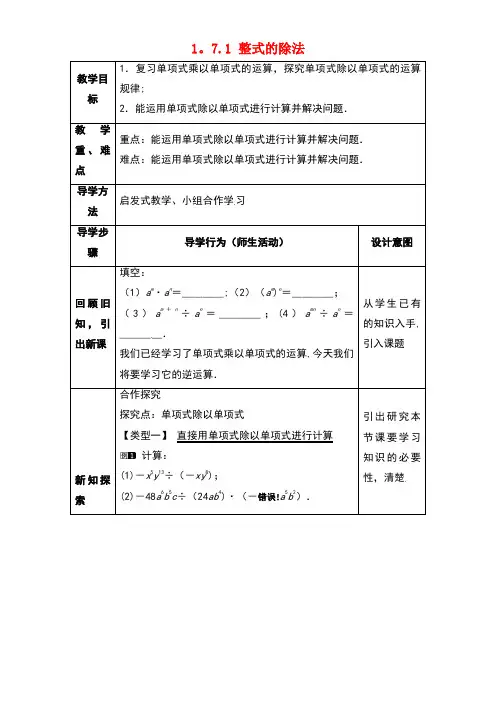 1。7.1 整式的除法
教学目
标
1．复习单项式乘以单项式的运算，探究单项式除以单项式的运算
规律;
2．能运用单项式除以单项式进行计算并解决问题．
教学
重、难
点
重点：能运用单项式除以单项式进行计算并解决问题．
难点：能运用单项式除以单项式进行计算并解决问题．
导学方
法
启发式教学、小组合作学习
导学步
骤
导学行为（师生活动）
设计意图
回顾旧
知，引
出新课
填空：
（1）aᵐ·aⁿ＝________;（2）（aᵐ)ⁿ＝________；
（3）aᵐ⁺ⁿ÷aⁿ＝________；(4）aᵐⁿ÷aⁿ＝
________．
我们已经学习了单项式乘以单项式的运算,今天我们
将要学习它的逆运算．
从学生已有
的知识入手,
引入课题
新知探
索
合作探究
探究点：单项式除以单项式
【类型一】 直接用单项式除以单项式进行计算
例1 计算：
(1)－x⁵y¹³÷（－xy⁸)；
(2)－48a⁶b⁵c÷（24ab⁴)·（－错误!a⁵b²）．
引出研究本
节课要学习
知识的必要
性，清楚